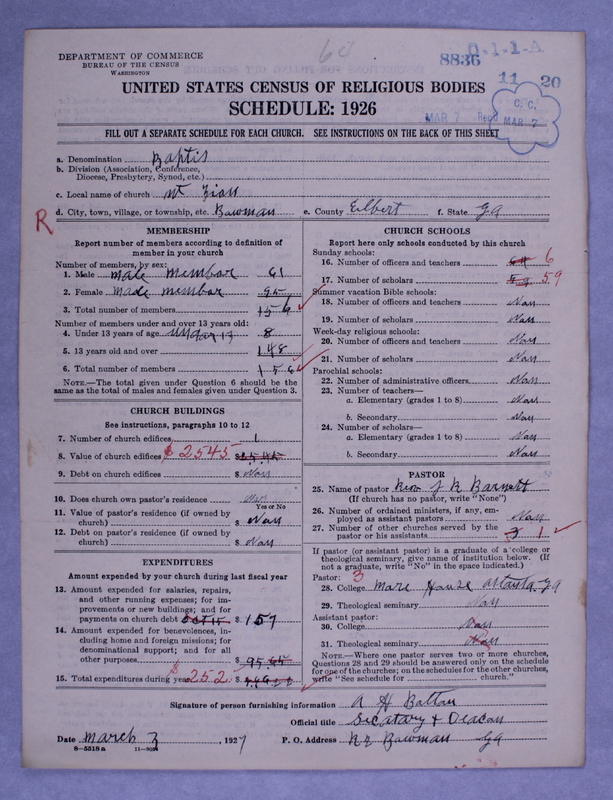 60
8836
0-1-1-A
11 20
DEPARTMENT OF COMMERCE
BUREAU OF THE CENSUS
WASHINGTON
UNITED STATES CENSUS OF RELIGIOUS BODIES
SCHEDULE: 1926
MAR 7 Recd
C. C.
MAR 7
FILL OUT A SEPARATE SCHEDULE FOR EACH CHURCH. SEE INSTRUCTIONS ON THE BACK OF THIS SHEET
a. Denomination Baptis
b. Division (Association, Conference, Diocese, Presbytery, Synod, etc.)
c. Local name of church Mt Zion
R
d. City, town, village, or township, etc. Bowman e. County Elbert f. State Ga
MEMBERSHIP
Report number of members according to definition of
member in your church
Number of members, by sex:
1. Male male member 61
2. Female made member 95
3. Total number of members 156
Number of members under and over 13 years old:
4. Under 13 years of age under 13 8
5. 13 years old and over 148
6. Total number of members 156
NOTE.—The total given under Question 6 should be the
same as the total of males and females given under Question 3.
CHURCH BUILDINGS
See instructions, paragraphs 10 to 12
7. Number of church edifices 1
8. Value of church edifices $2545
9. Debt on church edifices $ Non
10. Does church own pastor's residence
Yes or No
11. Value of pastor's residence (if owned by
church) $ Non
12. Debt on pastor's residence (if owned by
church) $ Non
EXPENDITURES
Amount expended by your church during last fiscal year
13. Amount expended for salaries, repairs,
and other running expenses; for im-
provements or new buildings; and for
payments on church debt $ 157
14. Amount expended for benevolences, in-
cluding home and foreign missions; for
denominational support; and for all
other purposes $ 95
15. Total expenditures during year $252 $
CHURCH SCHOOLS
Report here only schools conducted by this church
Sunday schools:
16. Number of officers and teachers 6
17. Number of scholars 59 59
Summer vacation Bible schools:
18. Number of officers and teachers Non
19. Number of scholars Non
Week-day religious schools:
20. Number of officers and teachers Non
21. Number of scholars Non
Parochial schools:
22. Number of administrative officers Non
23. Number of teachers—
a. Elementary (grades 1 to 8) Non
b. Secondary Non
24. Number of scholars—
a. Elementary (grades 1 to 8) Non
b. Secondary Non
PASTOR
25. Name of pastor Rev J R Barnett
(If church has no pastor, write "None")
26. Number of ordained ministers, if any, em-
ployed as assistant pastors Non
27. Number of other churches served by the
pastor or his assistants 3 1
If pastor (or assistant pastor) is a graduate of a college or
theological seminary, give name of institution below. (If
not a graduate, write "No" in the space indicated.)
Pastor: 3
28. College More House Atlanta Ga
29. Theological seminary Non
Assistant pastor:
30. College Non
31. Theological seminary Non
NOTE.—Where one pastor serves two or more churches,
Questions 28 and 29 should be answered only on the schedule
for one of the churches; on the schedules for the other churches,
write "See schedule for church."
Signature of person furnishing information A H Battan
Official title Secatary & Deacon
Date March 3, 1927 P. O. Address Bowman Ga
8—5518a 11—9024